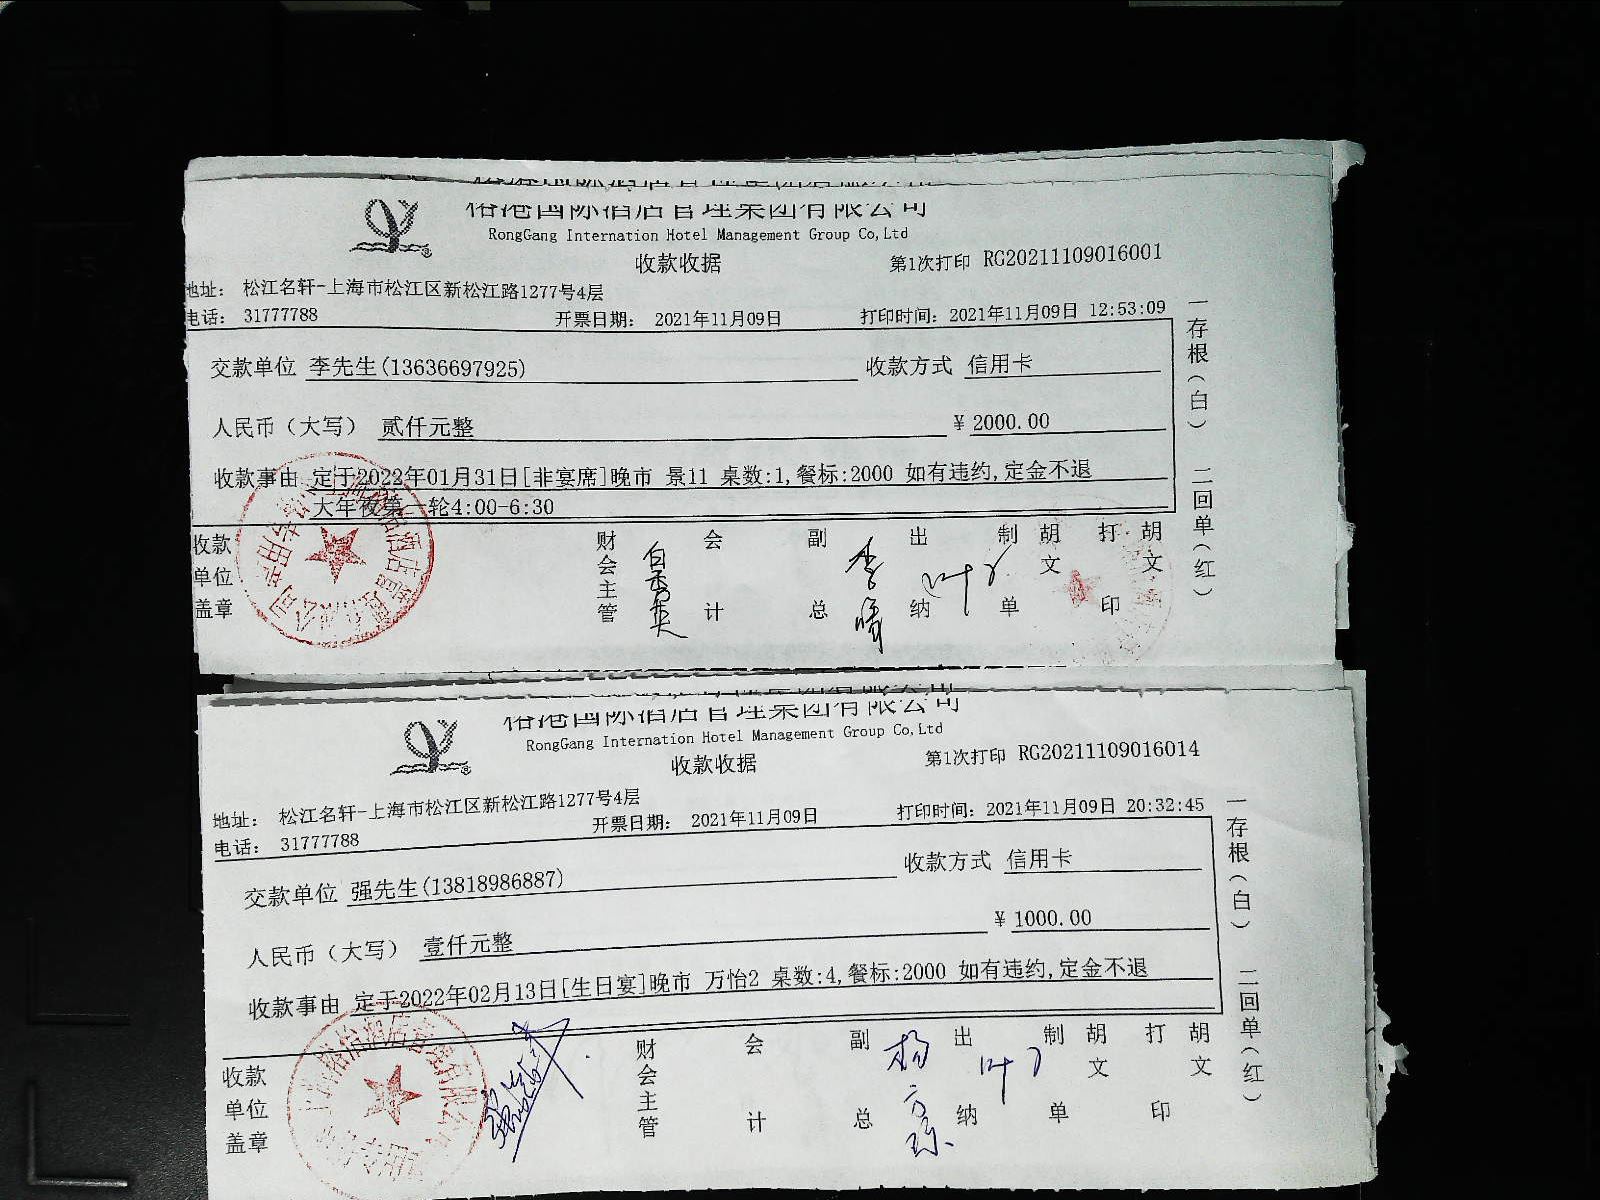 裕港国际酒店管理集团有限公司
RongGang Internation Hotel Management Group Co,Ltd
收款收据
第1次打印 RG20211109016001
地址: 松江名轩-上海市松江区新松江路1277号4层
电话: 31777788
开票日期: 2021年11月09日
打印时间: 2021年11月09日 12:53:09
交款单位 李先生(13636697925)
收款方式 信用卡
人民币（大写） 贰仟元整
¥ 2000.00
收款事由 定于2022年01月31日[非宴席]晚市 景11 桌数:1,餐标:2000 如有违约,定金不退
大年夜第一轮4:00-6:30
收款单位盖章
财会主管
会计
副总
出纳
制单
胡文
打印
胡文
一存根(白) 二回单(红)
裕港国际酒店管理集团有限公司
RongGang Internation Hotel Management Group Co,Ltd
收款收据
第1次打印 RG20211109016014
地址: 松江名轩-上海市松江区新松江路1277号4层
电话: 31777788
开票日期: 2021年11月09日
打印时间: 2021年11月09日 20:32:45
交款单位 强先生(13818986887)
收款方式 信用卡
人民币（大写） 壹仟元整
¥ 1000.00
收款事由 定于2022年02月13日[生日宴]晚市 万怡2 桌数:4,餐标:2000 如有违约,定金不退
收款单位盖章
财会主管
会计
副总
出纳
制单
胡文
打印
胡文
一存根(白) 二回单(红)